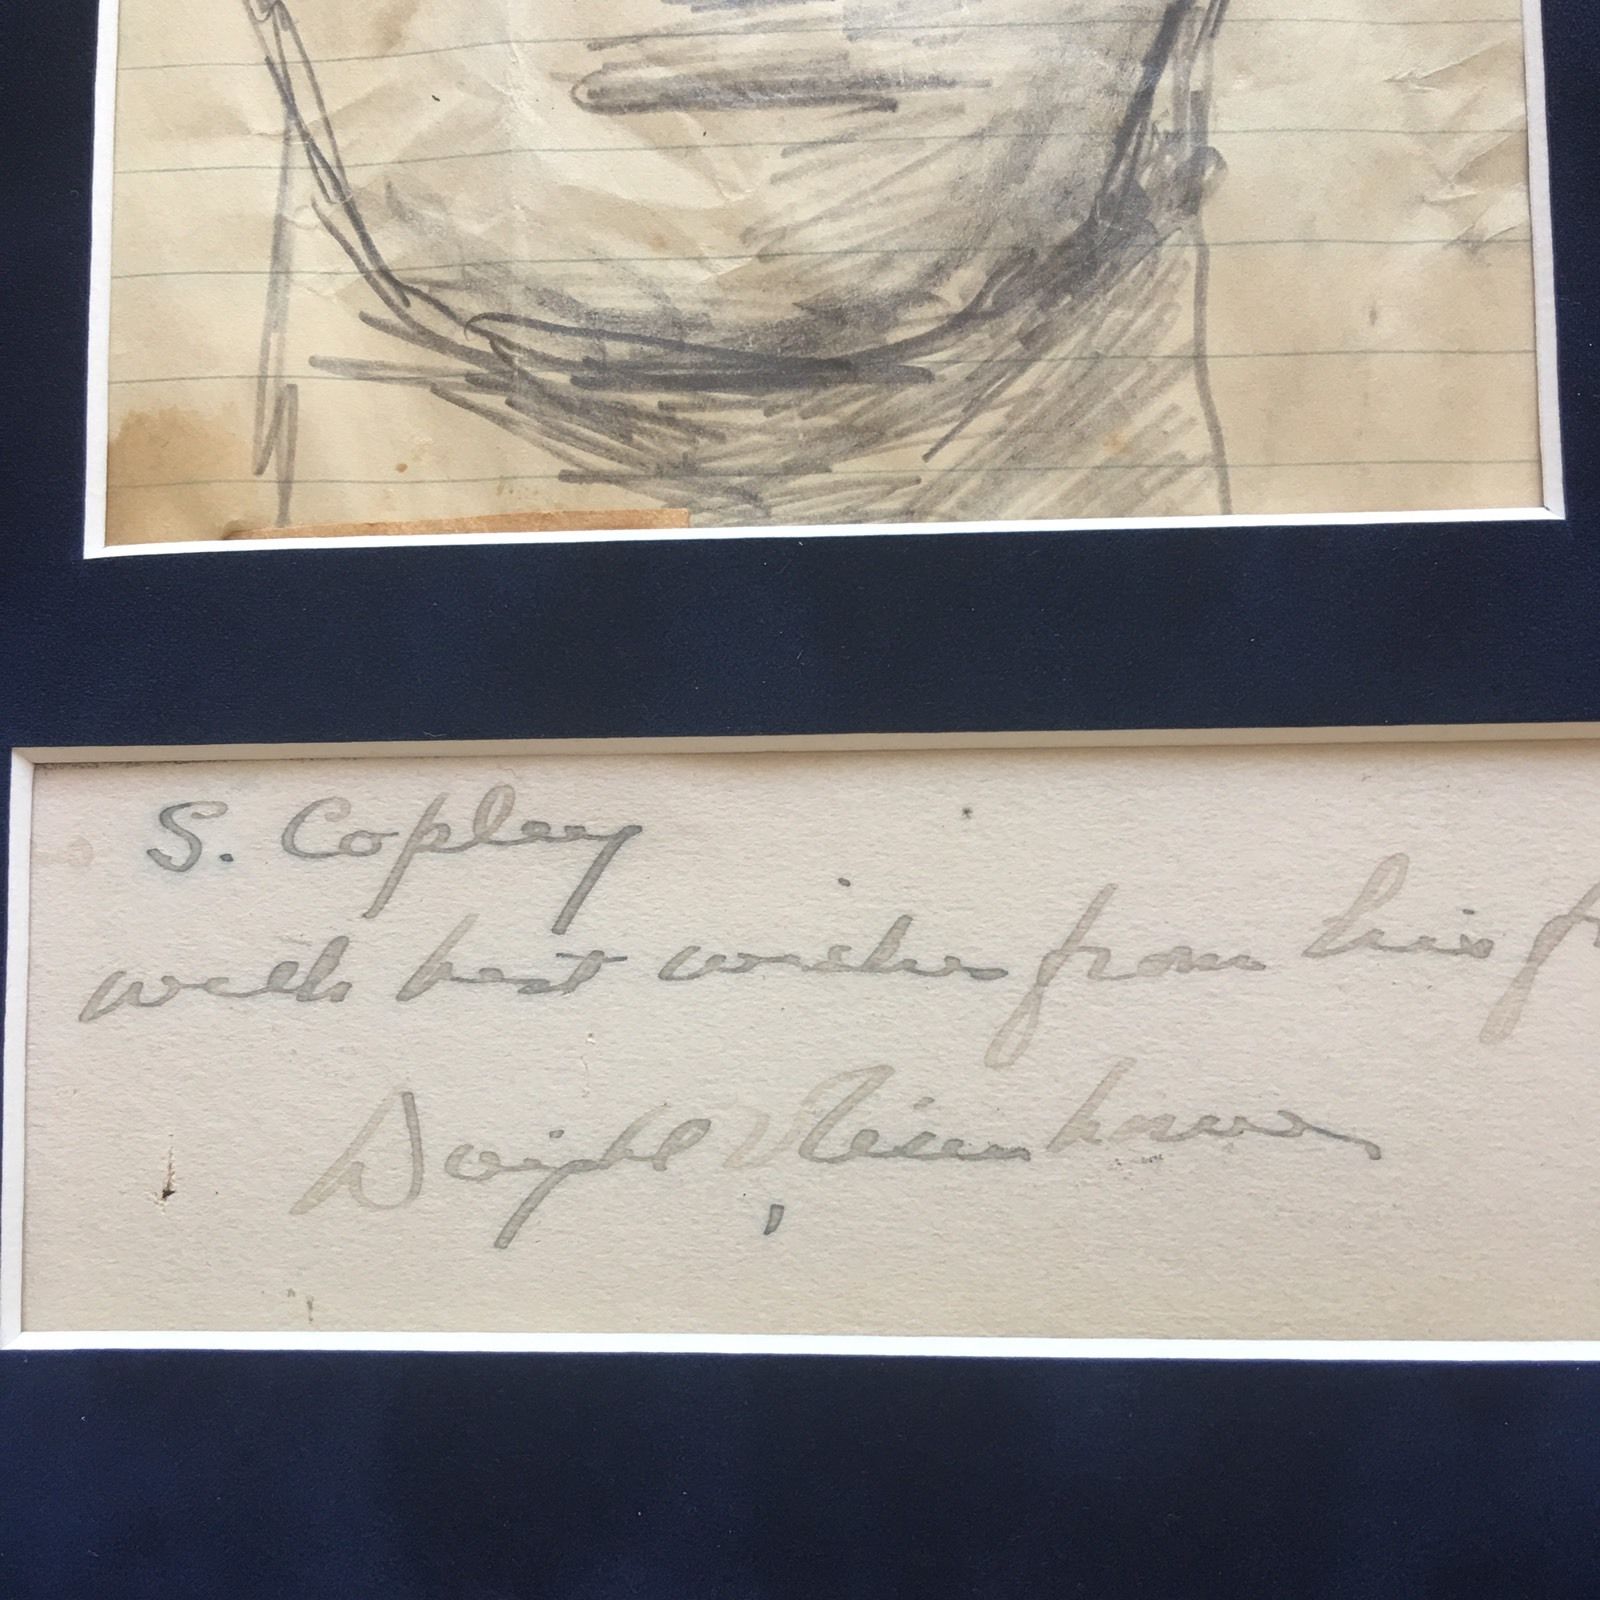 S. Copley
with best wishes from his f
Dwight D Eisenhower